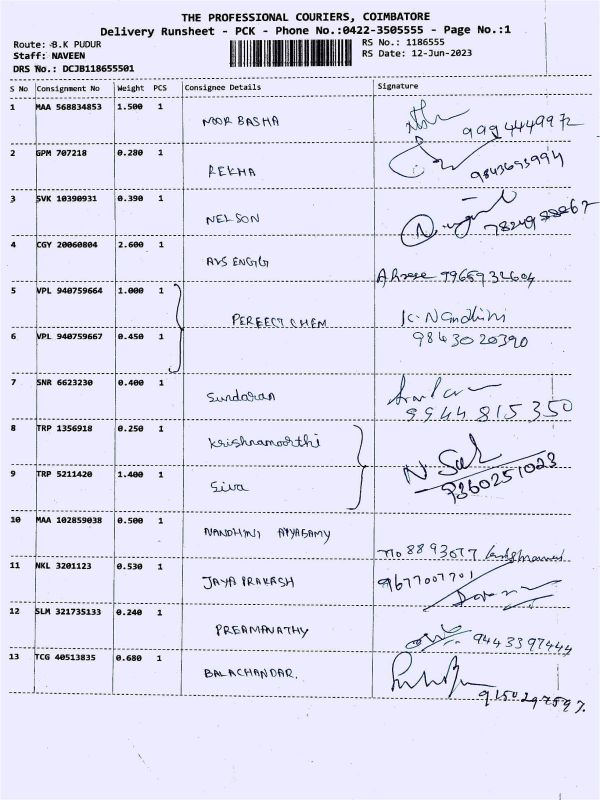 THE PROFESSIONAL COURIERS, COIMBATORE
Delivery Runsheet - PCK - Phone No.:0422-3505555 - Page No.:1
Route: B.K PUDUR RS No.: 1186555
Staff: NAVEEN RS Date: 12-Jun-2023
DRS No.: DCJB118655501
S No Consignment No Weight PCS Consignee Details Signature
1 MAA 568834853 1.500 1 NOOR BASHA 9994449972
2 GPM 707218 0.280 1 REKHA 9843693994
3 SVK 10390931 0.390 1 NELSON
4 CGY 20060804 2.600 1 AVS ENGG
5 VPL 940759664 1.000 1 PERFECT CHEM K. Nandhini
6 VPL 940759667 0.450 1 9843020390
7 SNR 6623230 0.400 1 Sundaran 9944815350
8 TRP 1356918 0.250 1 Krishnamoorthi
9 TRP 5211420 1.400 1 Siva 9360251023
10 MAA 102859038 0.500 1 NANDHINI AYYASAMY
11 NKL 3201123 0.530 1 JAYA PRAKASH 9677007701
12 SLM 321735133 0.240 1 PREAMAVATHY 9443397444
13 TCG 40513835 0.680 1 BALACHANDAR. 9150297597